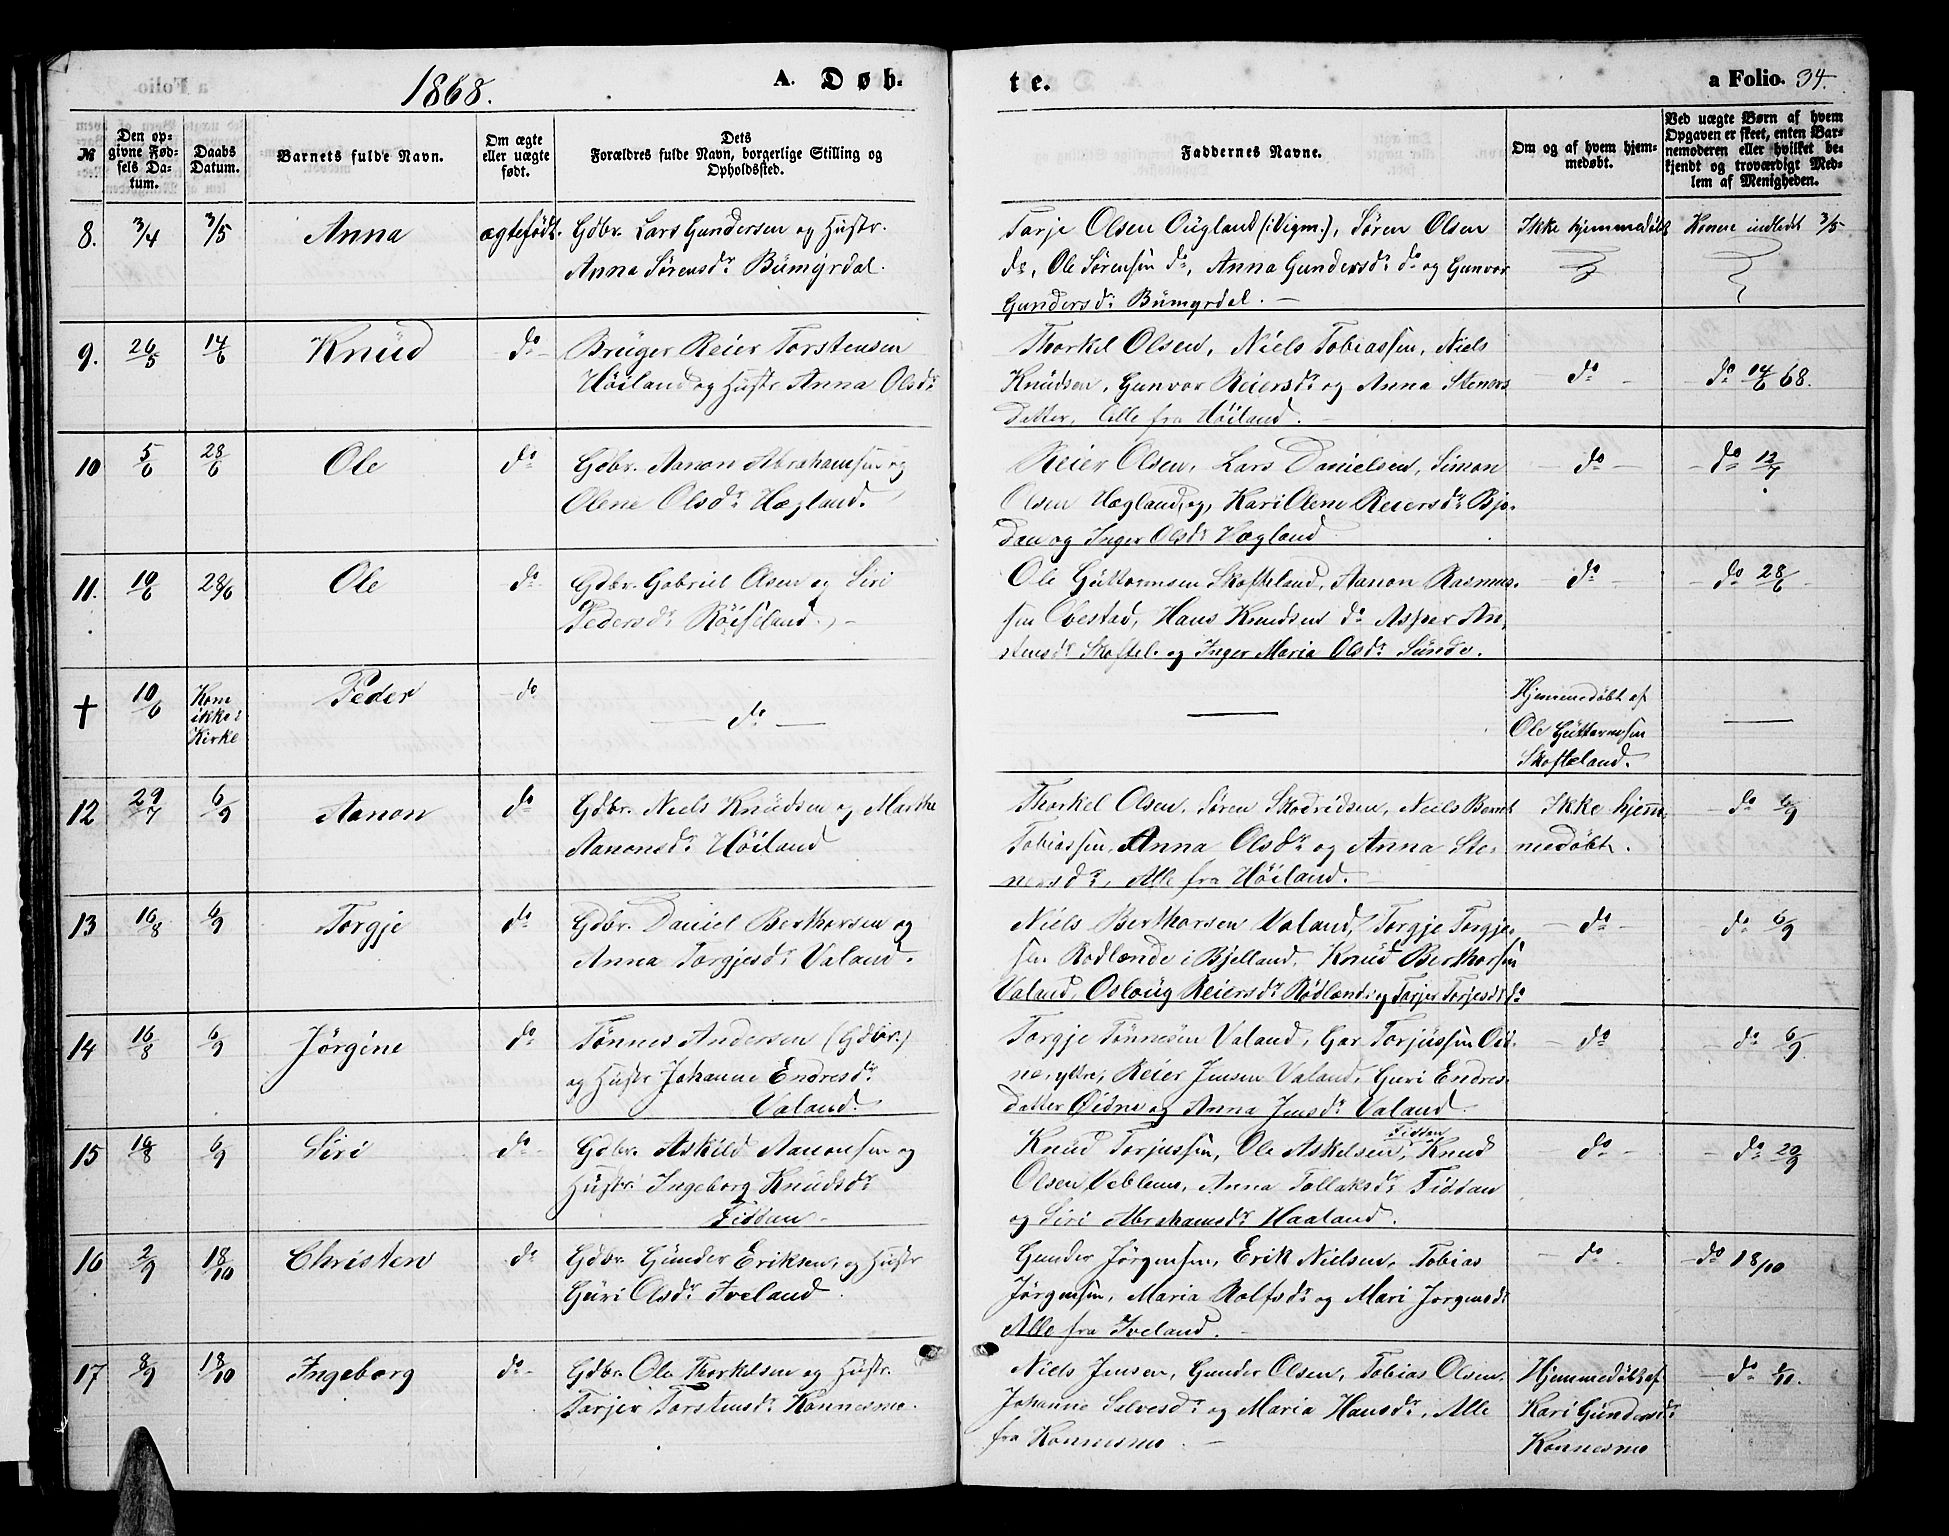 1868.
A. Døb-
te.
a Folio. 34.
№
Den op-
givne Fød-
sels Da-
tum.
Daabs
Datum.
Barnets fulde Navn.
Om ægte
eller uægte
født.
Dets
Forældres fulde Navn, borgerlige Stilling og
Opholdssted.
Faddernes Navne.
Om og af hvem hjem-
medøbt.
Ved uægte Børn af hvem
Opgaven er skeet, enten Bar-
nemoderen eller hvilket be-
kjendt og troværdigt Med-
lem af Menigheden.
8. 3/4 3/5 Anna ægtefødt.
Gdbr. Lars Gundersen og Hustr.
Anna Sørensdr Bümyrdal.
Tarje Olsen Ougland (i Vigm.), Søren Olsen
do, Ole Sørensen do, Anna Gundersdr do og Gunvor
Gundersdr Bümyrdal. —
Ikke hjemmedøbt
Konen indledt 3/5
9. 26/5 14/6 Knüd do
Brüger Reier Torstensen
Höiland og Hustr Anna Olsdr
Thorkel Olsen, Niels Tobiassen, Niels
Knüdsen, Gunvor Reiersdr og Anna Steners
datter, Alle fra Höiland. —
do
do 14/6 68.
10 5/6 28/6 Ole do
Gdbr. Aanon Abrahamsen og
Olene Olsdr Hægland.
Reier Olsen, Lars Danielsen, Simon
Olsen Hægland, og, Kari Olene Reiersdr Bjo-
dan og Inger Olsdr Hægland
do
do 12/7
11. 10/6 28/6 Ole do
Gdbr. Gabriel Olsen og Siri
Pedersdr Röiseland. —
Ole Güttormsen Skofteland, Aanon Rasmus-
sen Obestad, Hans Knudsen do Asper An-
stensdr Skoftel. og Inger Maria Olsdr Sünde.
do
do 28/6
† 10/6
Kom
ikke i
Kirke
Peder do
— do —
—
Hjemmedøbt af
Ole Güttormsen
Skofteland.
—
12 29/7 6/9 Aanon do
Gdbr. Niels Knüdsen og Marthe
Aanonsdr Höiland
Thorkel Olsen, Søren Skodvidsen, Niels Bernt
Tobiassen, Anna Olsdr og Anna Ste-
nersdr, Alle fra Höiland.
Ikke hjem-
medøbt.
do 6/9
13 16/8 6/9 Torgje do
Gdbr. Daniel Berthorsen og
Anna Torgjesdr Valand.
Niels Berthorsen Valand, Torgje Torgje-
sen Rodlende i Bjelland, Knüd Berthorsen
Valand, Osloug Reiersdr Rödland: og Torjer Torjesdr do
do
do 6/9
14 16/8 6/9 Jörgine do
Tönnes Andersen (Gdbr.)
og Hustr Johanne Endresdr
Valand.
Torgje Tönnesen Valand, Gar Torjussen Öid-
ne, yttre, Reier Jensen Valand, Guri Endres-
datter Öidne og Anna Jensdr Valand.
do
do 6/9
15 16/8 6/9 Siri do
Gdbr. Askild Aanonsen og
Hustr Ingeborg Knüdsdr
Fidtan
Knüd Torjussen, Ole Askelsen, Fidtan Knud
Olsen Veblens, Anna Tollaksdr Fidtan
og Siri Abrahamsdr Haaland.
do
do 20/9
16 2/9 18/10 Christen do
Gdbr. Günder Eriksen, og Hustr
Güri Olsdr Iveland.
Gunder Jörgensen, Erik Nielsen, Tobias
Jörgensen, Maria Rolfsdr og Mari Jorgensdr
Alle fra Iveland. —
do
do 18/10
17 8/9 18/10 Ingeborg do
Gdbr. Ole Thorkelsen og Hustr.
Torjer Torstensdr Konnesmo.
Niels Jensen, Gunder Olsen, Tobias Olsen,
Johanne Salvesdr og Maria Hansdr, Alle
fra Konnesmo. —
Hjemmedøbt af
Kari Gündersdr
Konnesmo